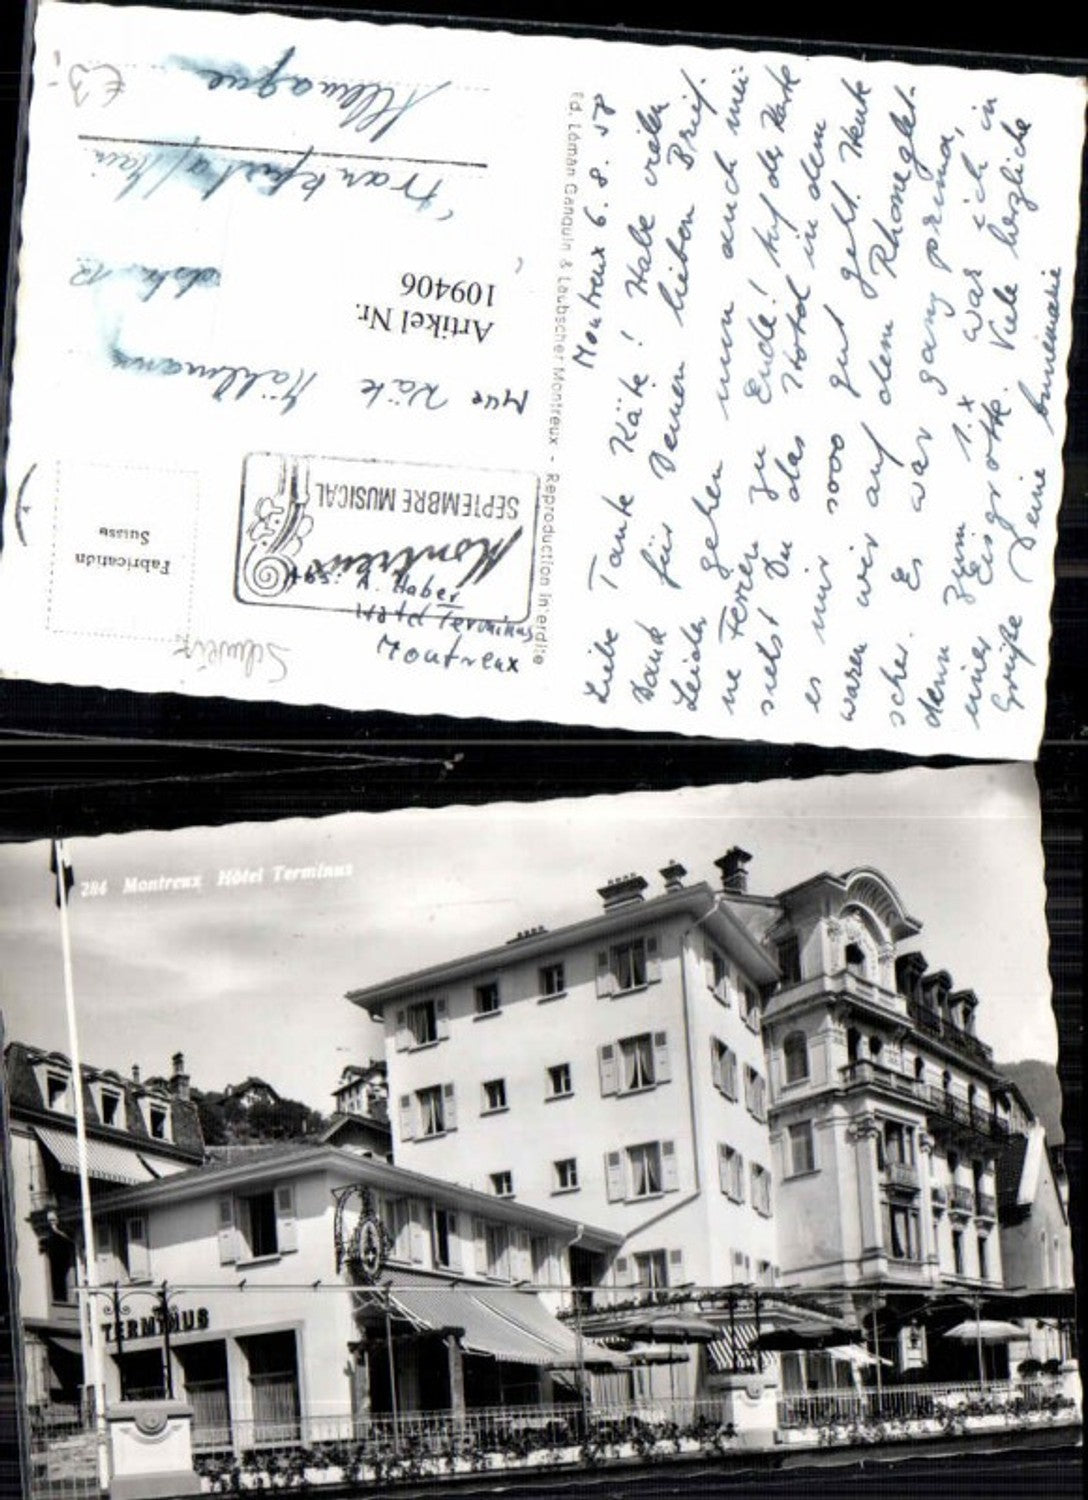 Montreux 6. 8. 58
Liebe Tante Käte! Habe vielen
Dank für Deinen lieben Brief.
Leider gehen nun auch mei-
ne Ferien zu Ende! Auf der Karte
siehst Du das Hotel in dem
es mir sooo gut geht. Heute
waren wir auf dem Rhoneglet-
scher. Es war ganz prima,
denn zum 1. x war ich in
einer Eisgrotte. Viele herzliche
Grüße Deine Annemarie
Ed. Löman Ganguin & Laubscher Montreux - Reproduction interdite
Fabrication
Suisse
SEPTEMBRE MUSICAL
Montreux
A. Haber
Hotel Terminus
Montreux
Schweiz
Mlle Käte
Artikel Nr.
109406
Frankfurt a/Main
Allemagne
€3,-
284 Montreux Hôtel Terminus
TERMINUS